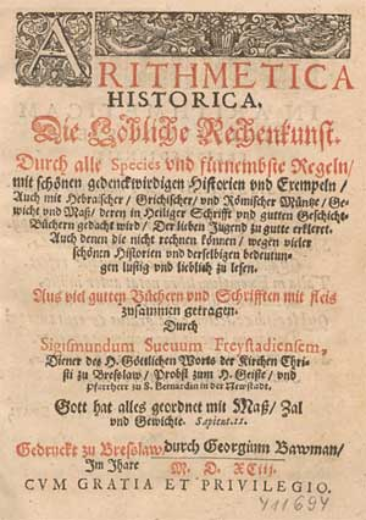 ARITHMETICA
HISTORICA.
Die Löbliche Rechenkunst.
Durch alle Species vnd fürnembste Regeln/
mit schönen gedenckwirdigen Historien vnd Exempeln/
Auch mit Hebraischer/ Grichischer/ vnd Römischer Müntze/ Ge-
wicht vnd Maß/ deren in Heiliger Schrifft vnd gutten Geschicht-
Büchern gedacht wird/ Der lieben Jugend zu gutte erkleret.
Auch denen die nicht rechnen können/ wegen vieler
schönen Historien vnd derselbigen bedeutun-
gen lustig vnd lieblich zu lesen.
Aus viel gutten Büchern vnd Schrifften mit fleis
zusammen getragen.
Durch
Sigismundum Sueuum Freystadiensem,
Diener des H. Göttlichen Worts der Kirchen Chri-
sti zu Breßlaw/ Probst zum H. Geiste/ vnd
Pfarrherr zu S. Bernardin in der Newstadt.
Gott hat alles geordnet mit Maß/ Zal
vnd Gewichte. Sapient.11.
Gedruckt zu Breßlaw/ durch Georgium Bawman/
Im Jhare M. D. XCiij.
CVM GRATIA ET PRIVILEGIO.
411694